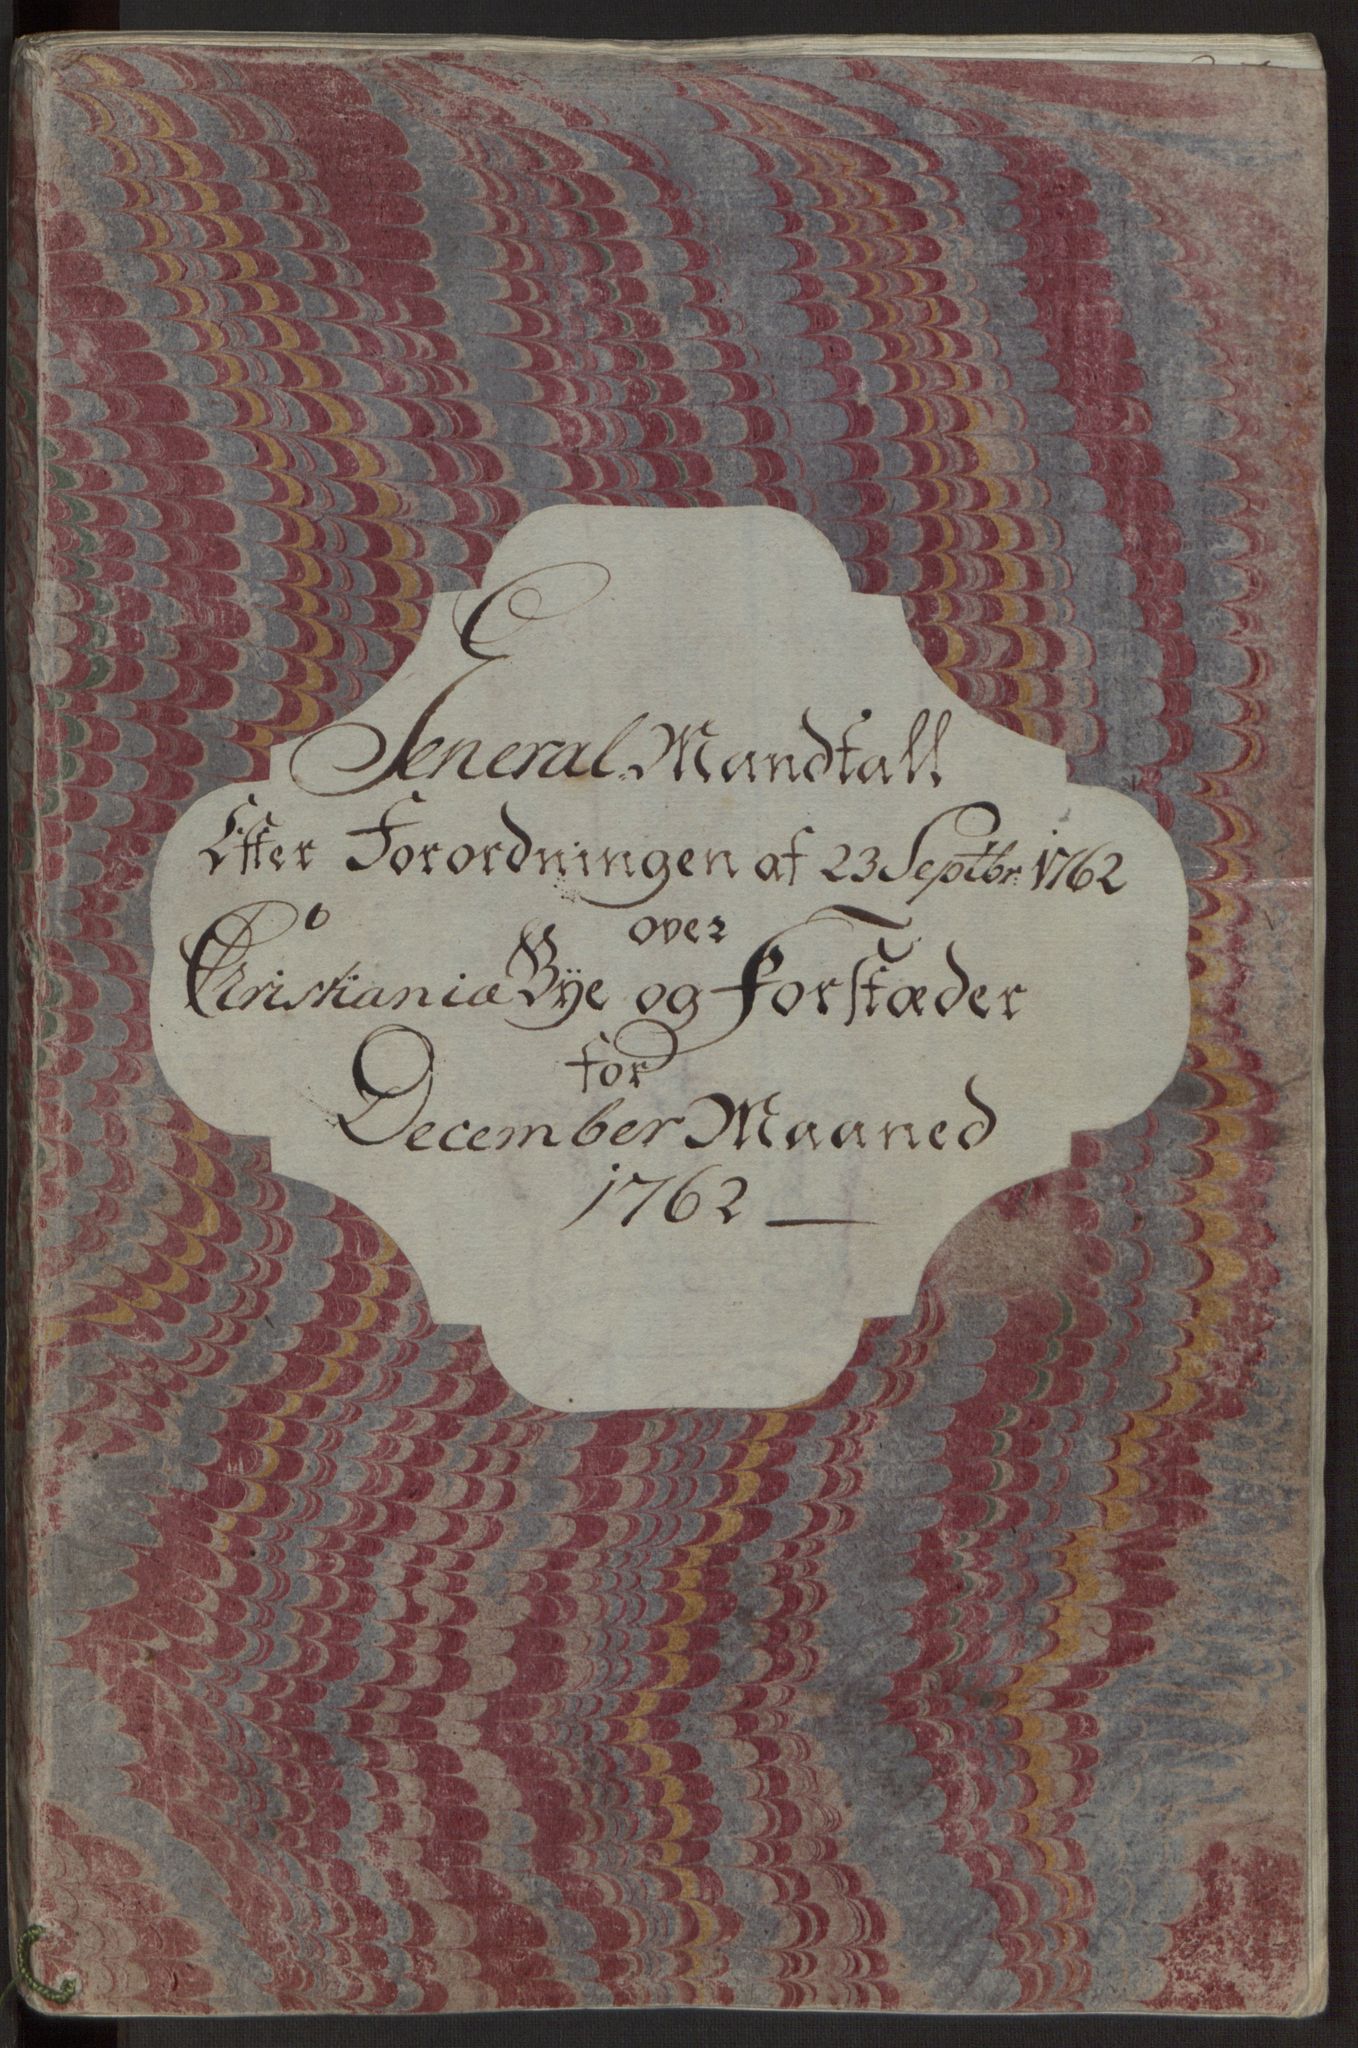 General Mandtall
Efter Forordningen af 23 Septbr: 1762
over
Christiania Bÿe og Forstæder
for
December Maaned
1762